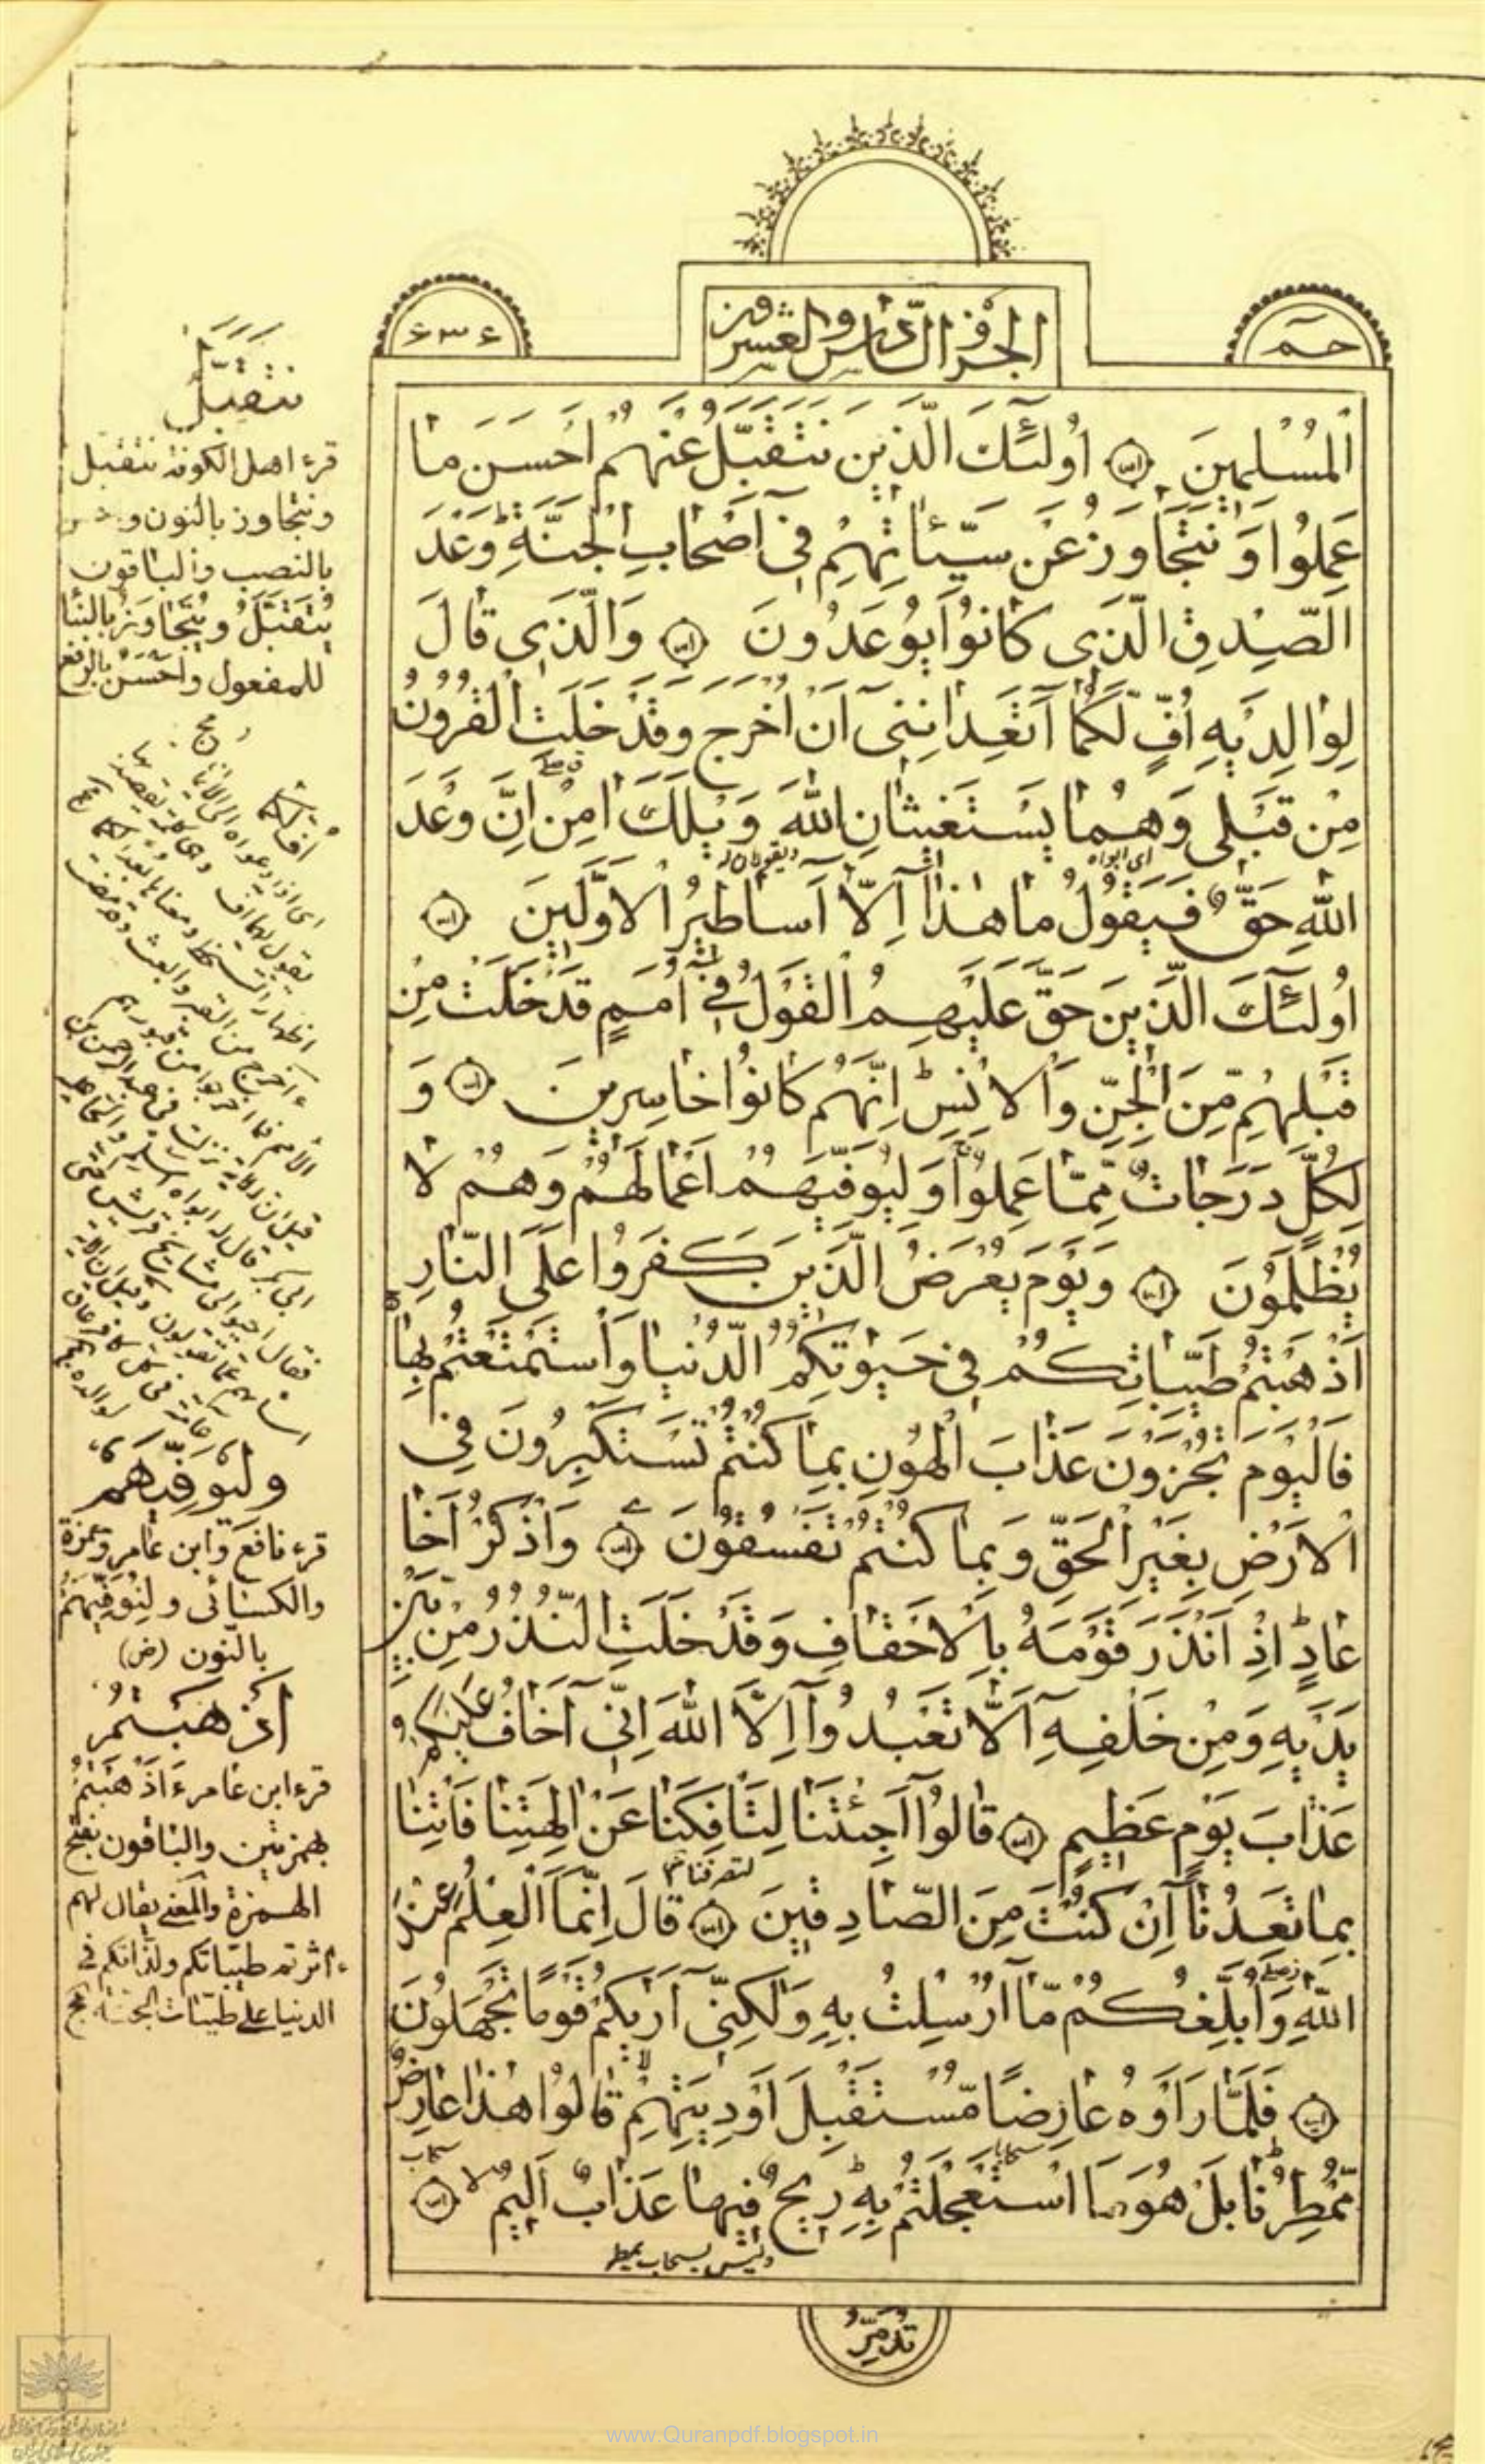 الجزؤ السّادس والعشرون
حم
٤٣٦
اَلْمُسْلِمينَ اُولٰٓئِكَ الَّذينَ نَتَقَبَّلُ عَنْهُمْ اَحْسَنَ مٰا
عَمِلُوا وَ نَتَجٰاوَزُ عَنْ سَيِّئٰاتِهِمْ فى اَصْحٰابِ الْجَنَّةِ وَعْدَ
الصِّدْقِ الَّذى كٰانُوا يُوعَدُونَ وَالَّذى قٰالَ
لِوٰالِدَيْهِ اُفٍّ لَكُمٰا اَتَعِدٰانِنى اَنْ اُخْرَجَ وَقَدْ خَلَتِ الْقُرُونُ
مِنْ قَبْلى وَهُمٰا يَسْتَغيثٰانِ اللّٰهَ وَيْلَكَ اٰمِنْ اِنَّ وَعْدَ
اى ابواه
ويقولان له
اللّٰهِ حَقٌّ فَيَقُولُ مٰا هٰذٰا اِلّٰا اَسٰاطيرُ الْاَوَّلينَ
اُولٰٓئِكَ الَّذينَ حَقَّ عَلَيْهِمُ الْقَوْلُ فى اُمَمٍ قَدْ خَلَتْ مِنْ
قَبْلِهِمْ مِنَ الْجِنِّ وَالْاِنْسِ اِنَّهُمْ كٰانُوا خٰاسِرينَ وَ
لِكُلٍّ دَرَجٰاتٌ مِمّٰا عَمِلُوا وَ لِيُوَفِّيَهُمْ اَعْمٰالَهُمْ وَهُمْ لٰا
يُظْلَمُونَ وَيَوْمَ يُعْرَضُ الَّذينَ كَفَرُوا عَلَى النّٰارِ
اَذْهَبْتُمْ طَيِّبٰاتِكُمْ فى حَيٰوتِكُمُ الدُّنْيٰا وَاسْتَمْتَعْتُمْ بِهٰا
فَالْيَوْمَ تُجْزَوْنَ عَذٰابَ الْهُونِ بِمٰا كُنْتُمْ تَسْتَكْبِرُونَ فِى
الْاَرْضِ بِغَيْرِ الْحَقِّ وَ بِمٰا كُنْتُمْ تَفْسُقُونَ وَاذْكُرْ اَخٰا
عٰادٍ اِذْ اَنْذَرَ قَوْمَهُ بِالْاَحْقٰافِ وَقَدْ خَلَتِ النُّذُرُ مِنْ بَيْنِ
يَدَيْهِ وَمِنْ خَلْفِهِ اَلّٰا تَعْبُدُوا اِلَّا اللّٰهَ اِنّى اَخٰافُ عَلَيْكُمْ
عَذٰابَ يَوْمٍ عَظيمٍ قٰالُوا اَجِئْتَنٰا لِتَأْفِكَنٰا عَنْ اٰلِهَتِنٰا فَأْتِنٰا
لتصرفنا
بِمٰا تَعِدُنٰا اِنْ كُنْتَ مِنَ الصّٰادِقينَ قٰالَ اِنَّمَا الْعِلْمُ عِنْدَ
اللّٰهِ وَاُبَلِّغُكُمْ مٰا اُرْسِلْتُ بِهِ وَلٰكِنّى اَرٰيكُمْ قَوْمًا تَجْهَلُونَ
فَلَمّٰا رَاَوْهُ عٰارِضًا مُسْتَقْبِلَ اَوْدِيَتِهِمْ قٰالُوا هٰذٰا عٰارِضٌ
سحابا
سحاب
مُمْطِرُنٰا بَلْ هُوَ مَا اسْتَعْجَلْتُمْ بِهِ ريحٌ فيهٰا عَذٰابٌ اَليمٌ
وليس بسحاب ممطر
تُدَمِّرُ
نَتَقَبَّلُ
قرء اهل الكوفة نتقبل
ونتجاوز بالنون و
بالنصب والباقون
يُتَقَبَّلُ ويُتَجٰاوَزُ بالبناء
للمفعول واَحْسَنُ بالرفع
مج
وليوفيهم
قرء نافع وابن عامر وحمزة
والكسائى ولِنُوَفِّيَهُمْ
بالنّون (ض)
اَذْهَبْتُمْ
قرء ابن عامر ءَاَذْهَبْتُمْ
بهمزتين والباقون بفتح
الهمزة والمعنى يقال لهم
ءاثرتم طيّباتكم ولذّاتكم فى
الدنيا على طيّبات الجنّة مج
www.Quranpdf.blogspot.in